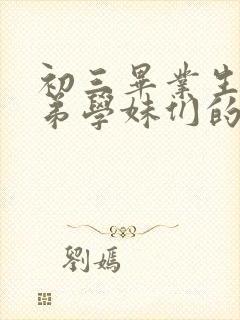 初三畢業生
弟學妹们的
劉嫣